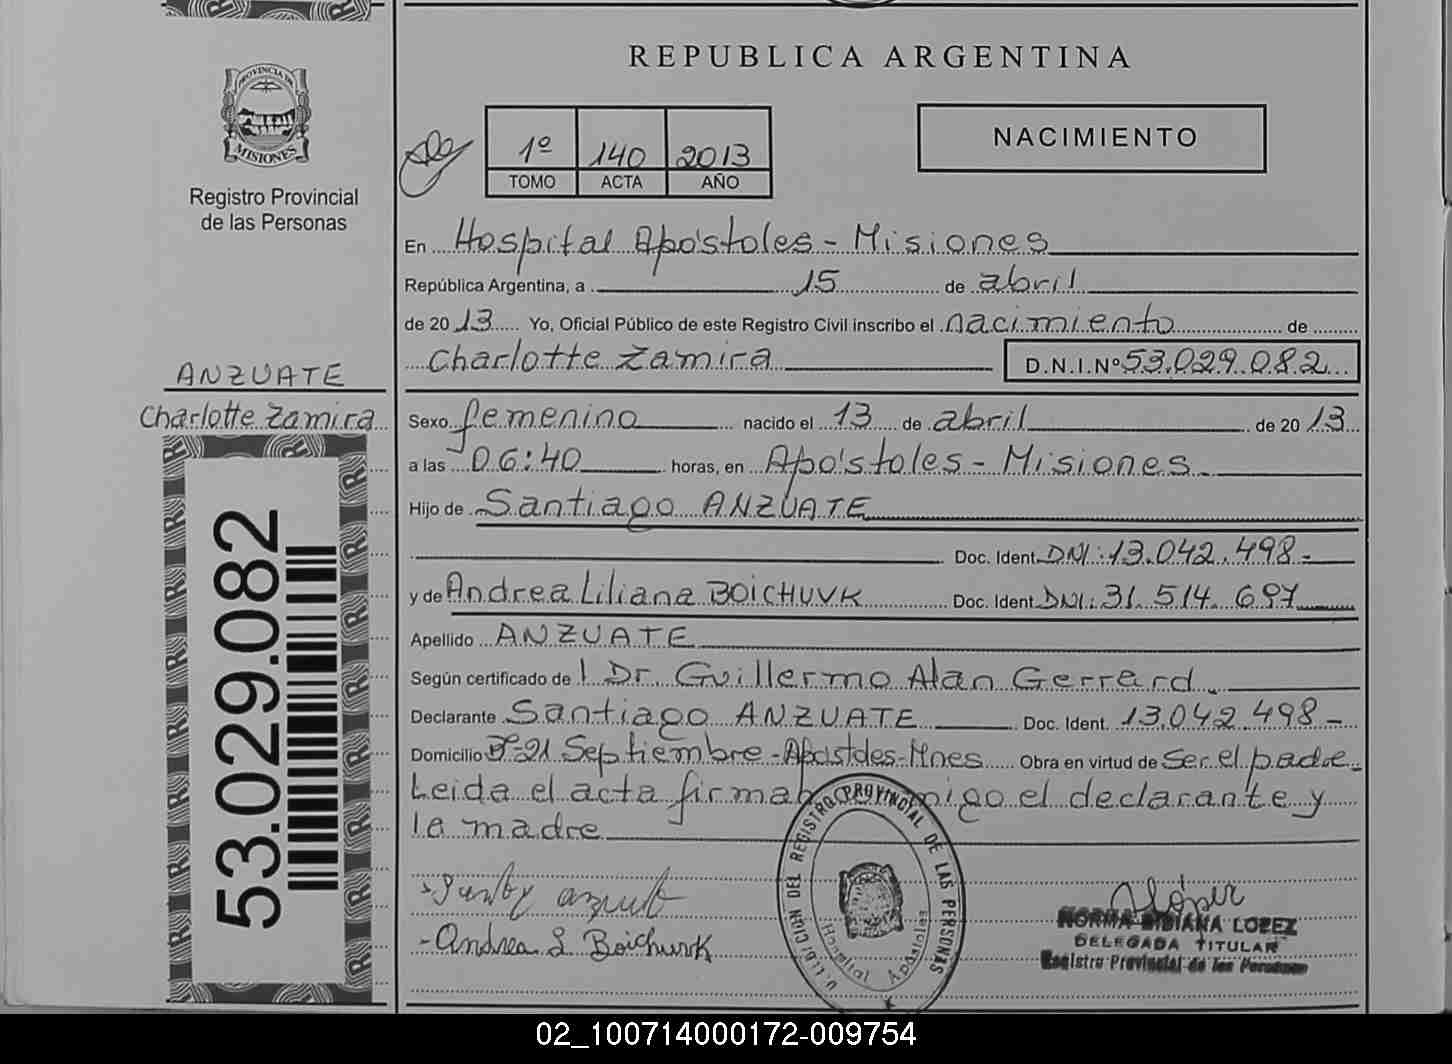 REPUBLICA ARGENTINA
PROVINCIA DE
MISIONES
Registro Provincial
de las Personas
1º 140 2013
TOMO ACTA AÑO
NACIMIENTO
En Hospital Apóstoles - Misiones
República Argentina, a 15 de abril
de 2013 Yo, Oficial Público de este Registro Civil inscribo el nacimiento de
Charlotte Zamira D.N.I.Nº 53.029.082
ANZUATE
Charlotte Zamira
Sexo femenino nacido el 13 de abril de 2013
a las 06:40 horas, en Apóstoles - Misiones
Hijo de Santiago ANZUATE
Doc. Ident. DNI: 13.042.498-
y de Andrea Liliana BOICHUVK Doc. Ident. DNI: 31.514.697
Apellido ANZUATE
Según certificado de l Dr. Guillermo Alan Gerrard
Declarante Santiago ANZUATE Doc. Ident. 13.042.498-
Domicilio Bº-21 Septiembre-Apóstoles-Mnes Obra en virtud de Ser el padre-
Leida el acta firman el declarante y
la madre
53.029.082
-Andrea L Boichuvk
REGISTRO PROVINCIAL DE LAS PERSONAS
Hospital Apóstoles
López
NORMA BIBIANA LOPEZ
DELEGADA TITULAR
Registro Provincial de las Personas
02_100714000172-009754